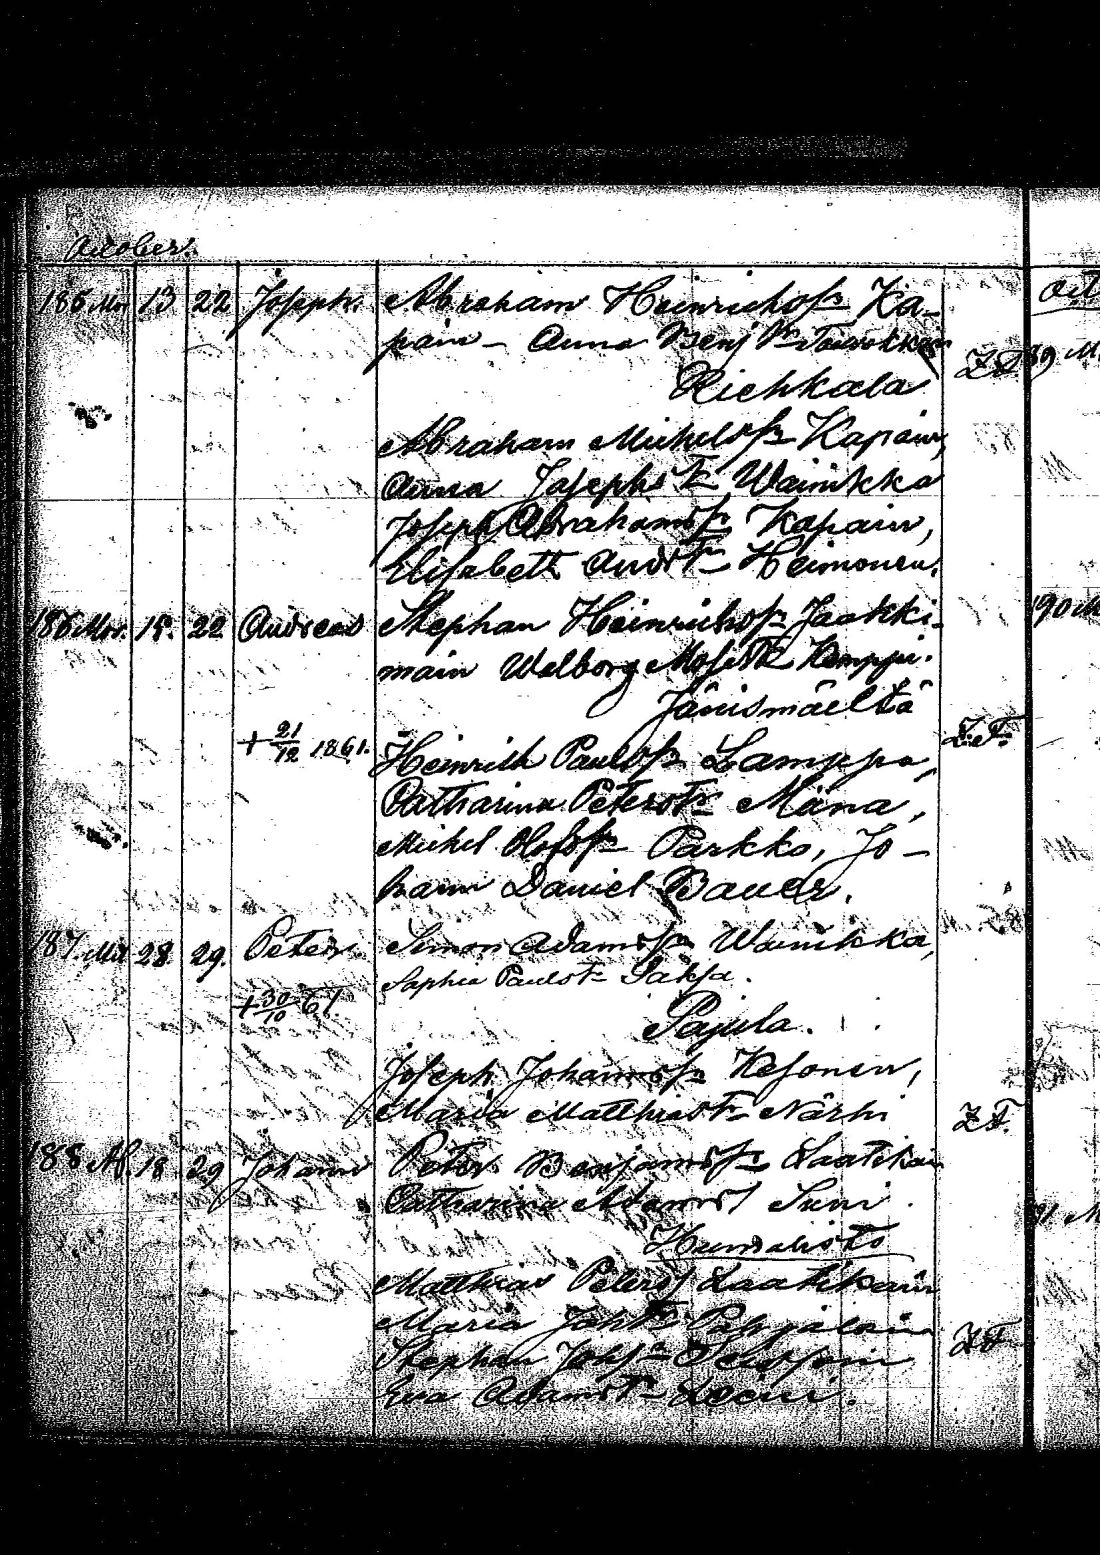 October.
185 Mor 13 22 Joseph. Abraham Heinrichsſn Ka-
pain - Anna Benj Dr Toiwokkan
Riehkala
Z.T.
Abraham Michelsſn Kapain,
Anna Josephs Tr Wainikka
Joseph Abrahamsſn Kapain,
Elisabeth And Tr Heimonen.
186 Mor. 15. 22 Andreas Stephan Heinrichsſn Jaakki-
main Walborg Mosis Tr Kemppi.
Jänismäeltä
+ 21/12 1861.
Z.T.
Heinrich Paulsſn Lamppa,
Catharina Peters Tr Mäna,
Michel Olofsſn Parkko, Jo-
hann Daniel Bauer.
187. 28 29. Peter. Simon Adamsſn Wainikka,
Sophia Pauls Tr Pakja.
+ 30/10 61.
Pajula.
Joseph Johannsſn Kesonen,
Maria Matthias Tr Närhi
Z.T.
188 Af. 18 29 Johann Peter Benjamsſn Laatikain
Catharina Adams T Suni.
Humalisto
Matthias Peters Laatikain
Maria Joh Tr Pohjalain
Stephan Johſn
Z.T.
Eva Adams Tr